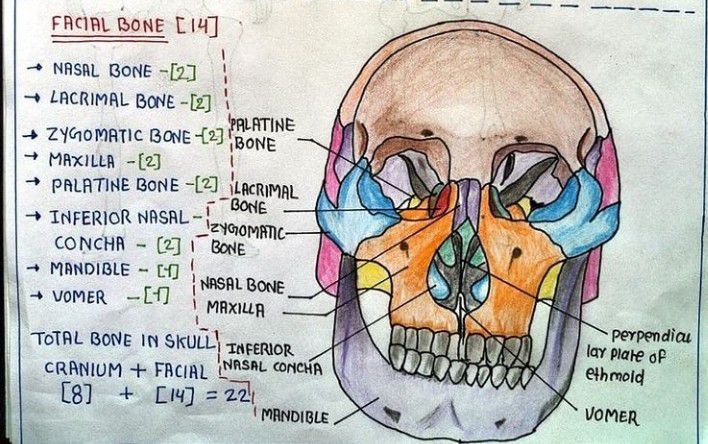 FACIAL BONE [14]
→ NASAL BONE -[2]
→ LACRIMAL BONE -[2]
→ ZYGOMATIC BONE -[2]
→ MAXILLA -[2]
→ PALATINE BONE -[2]
→ INFERIOR NASAL -
CONCHA - [2]
→ MANDIBLE - [1]
→ VOMER - [1]
TOTAL BONE IN SKULL
CRANIUM + FACIAL
[8] + [14] = 22
PALATINE
BONE
LACRIMAL
BONE
ZYGOMATIC
BONE
NASAL BONE
MAXILLA
INFERIOR
NASAL CONCHA
MANDIBLE
perpendicu
lar plate of
ethmoid
VOMER